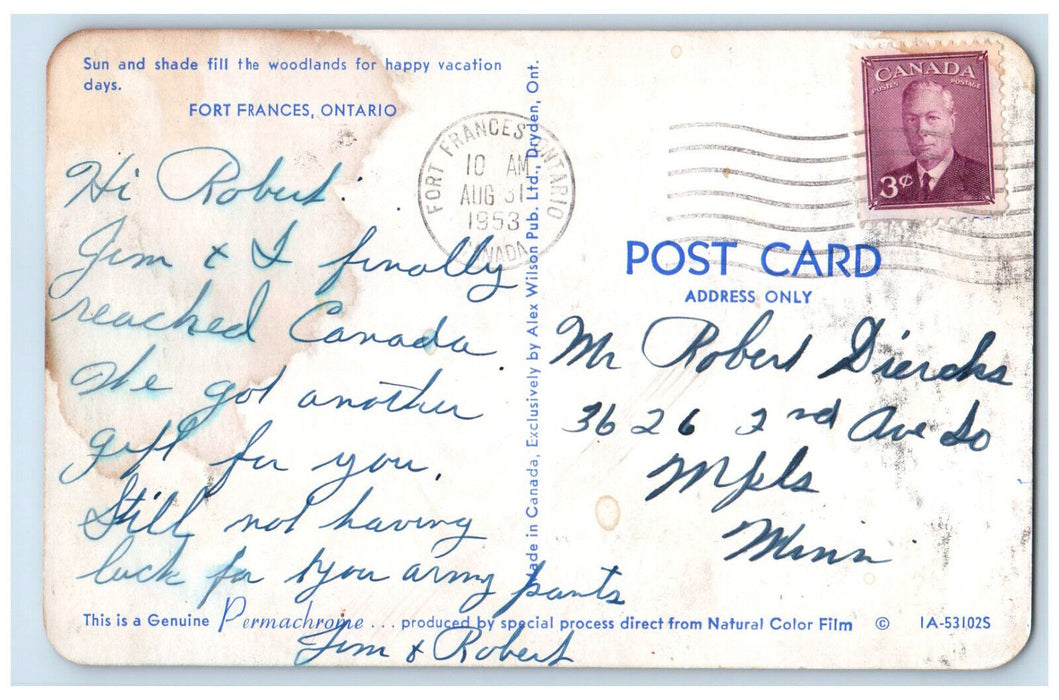 Sun and shade fill the woodlands for happy vacation
days.
FORT FRANCES, ONTARIO
Hi Robert.
Jim & I finally
reached Canada
We got another
gift for you.
Still not having
luck for you army pants
Jim & Robert
This is a Genuine Permachrome ... produced by special process direct from Natural Color Film © 1A-53102S
Made in Canada, Exclusively by Alex Wilson Pub. Ltd., Dryden, Ont.
FORT FRANCES ONTARIO
10 AM
AUG 31
1953
CANADA
CANADA
POSTES POSTAGE
3¢
POST CARD
ADDRESS ONLY
Mr Robert Dierchs
3626 2nd Ave So
Mpls
Minn